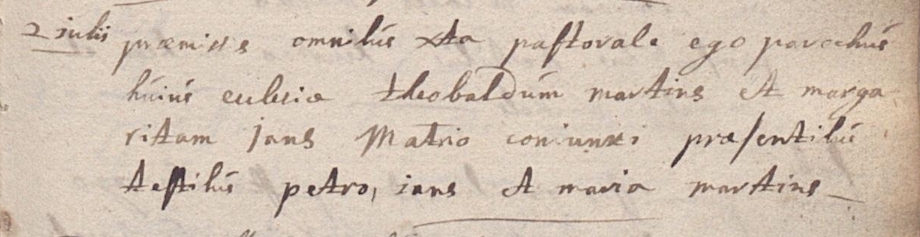 2 julii præmissis omnibus xta pastorale ego parochus
huius ecclesiæ theobaldum martins et marga
ritam jans Matrio coniunxi præsentibus
testibus petro, ians et maria martins